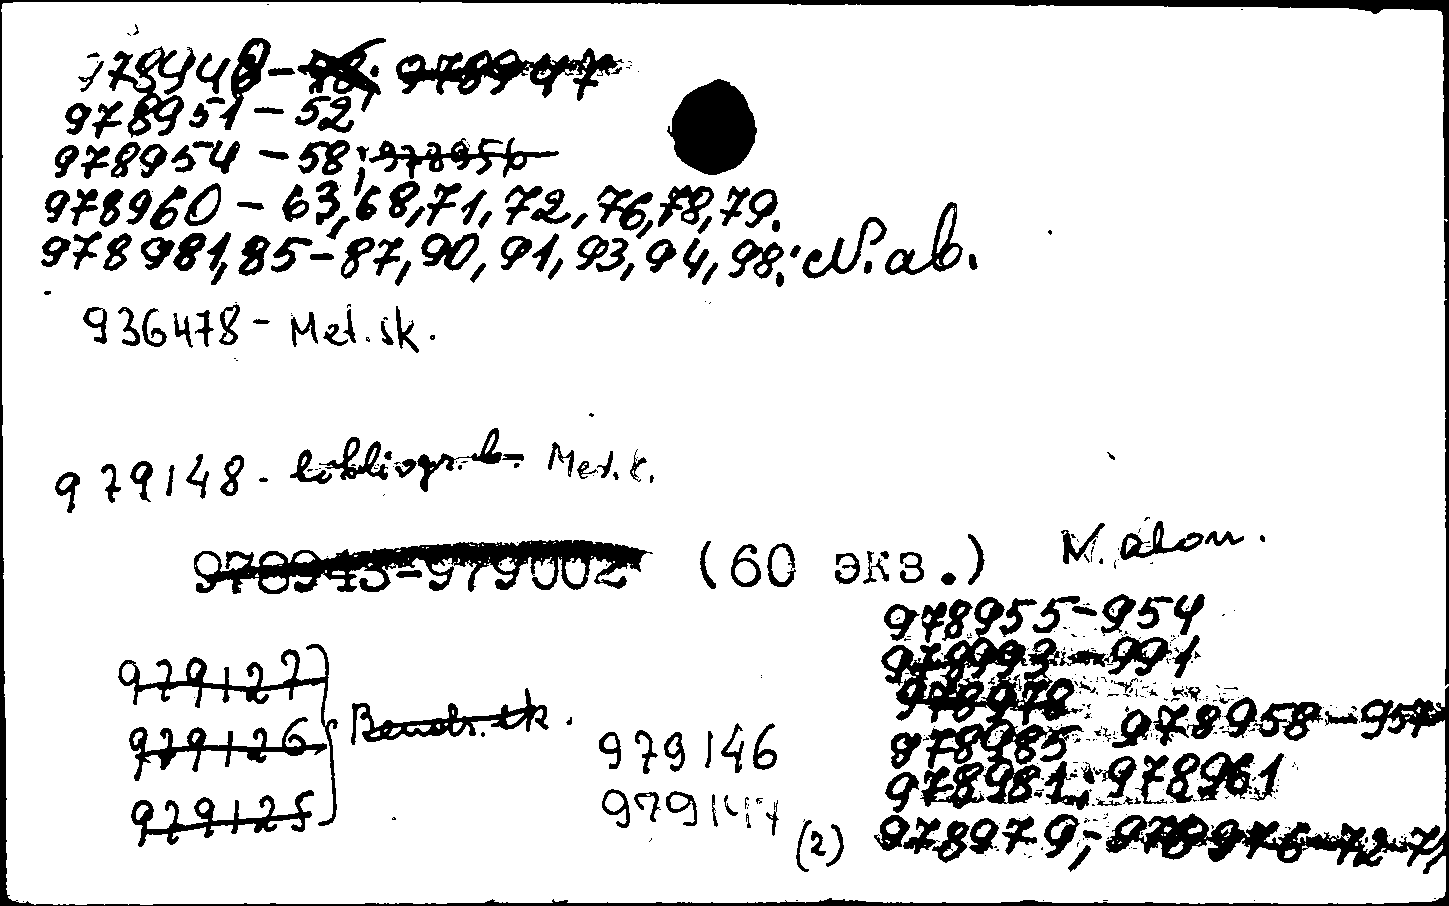 978948-78; 978947
978951-52,
978954-58; 978956
978960-63,68,71,72,76,78,79.
978981,85-87,90,91,93,94,98. N.ab.
936478- Met.sk.
979148- Met.k.
978943-979002 (60 экз.) M.abon.
978955-954
978993-991
978978
978958-957
978985
978981; 978961
978979; 978976-72-71
979127
979126
979125
979146
979147
(2)